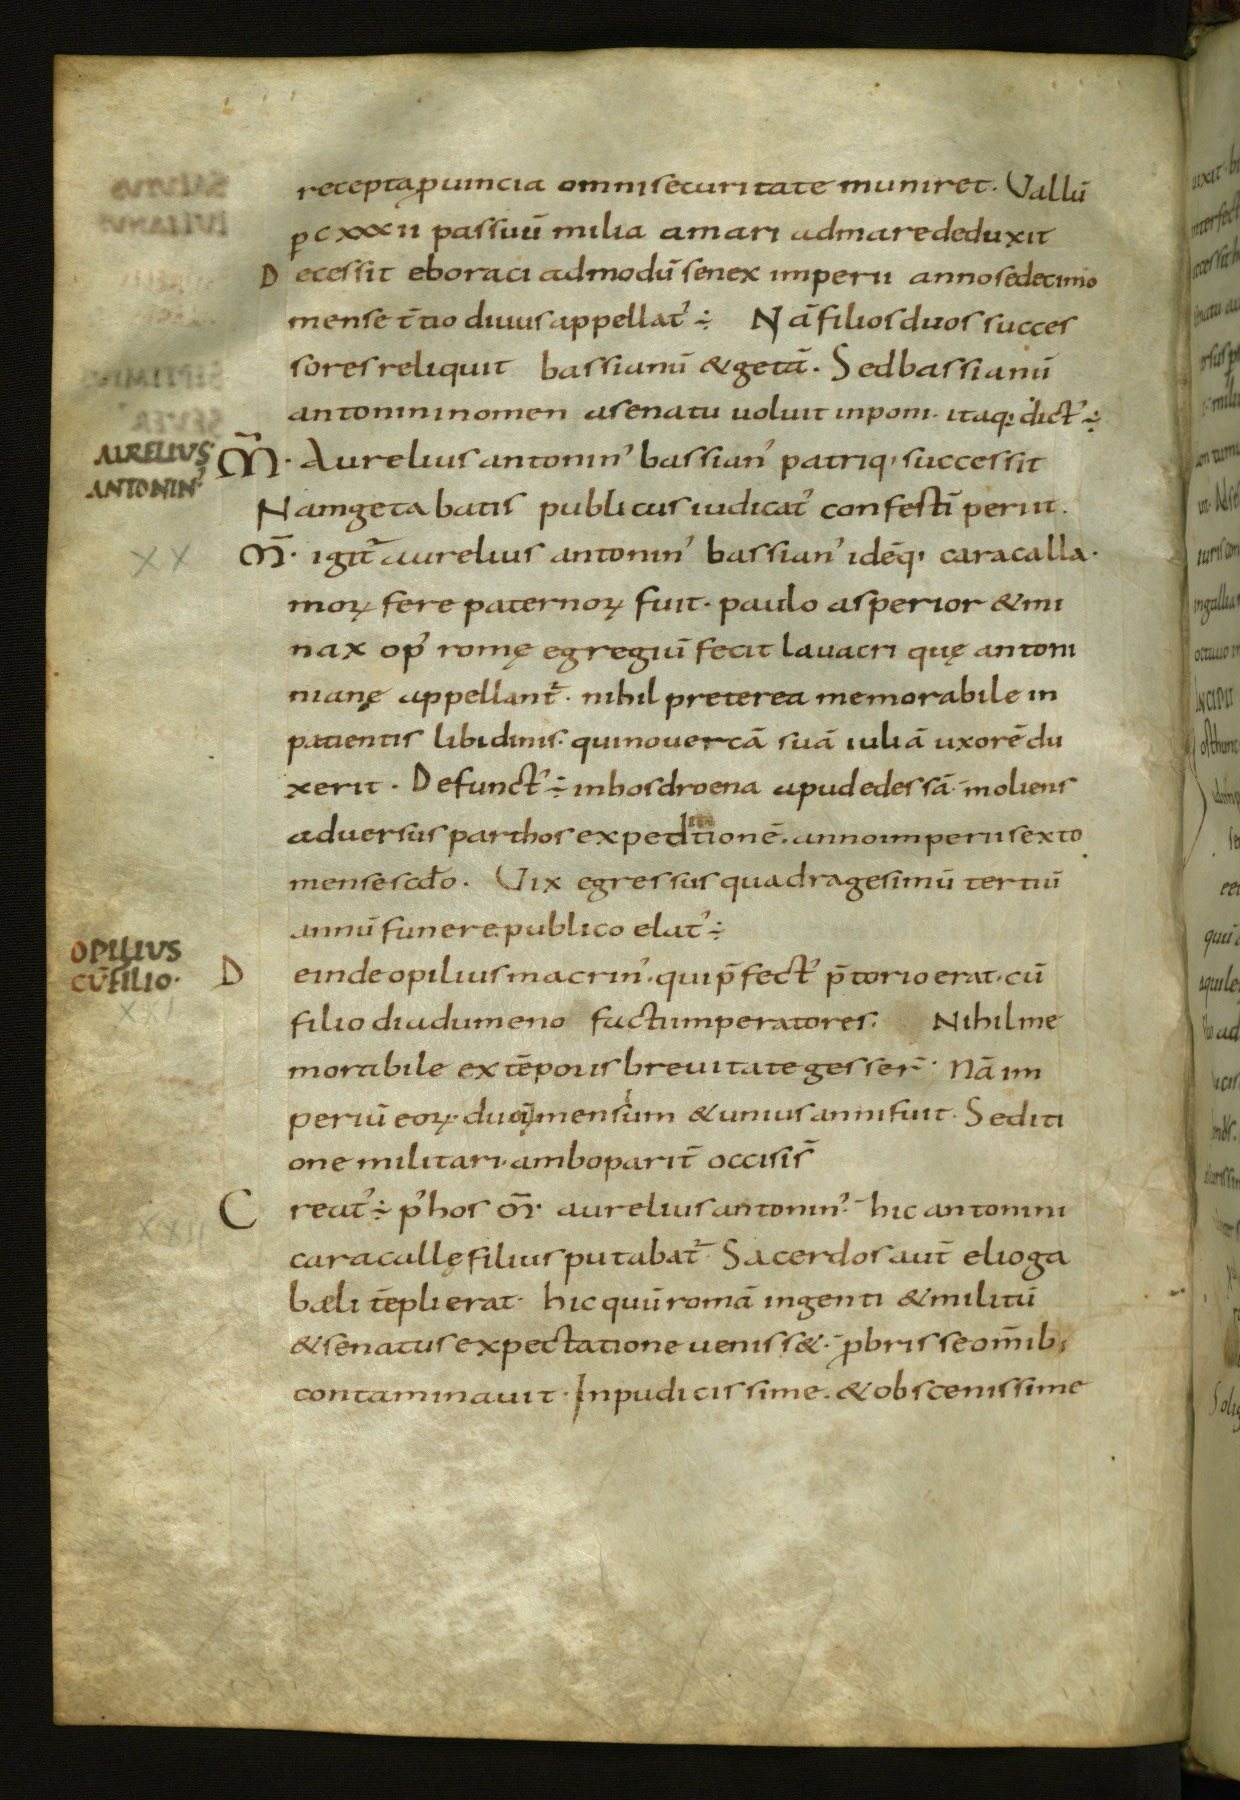 recepta ꝓuincia omni securitate muniret. Uallū
ꝑ cxxxii passuū milia a mari ad mare deduxit
Decessit eboraci admodū senex imperii anno sedecimo
mense t̄tio diuus appellatꝰ ÷ Nā filios duos succes
sores reliquit bassianū & getā. Sed bassianū
antonini nomen a senatu uoluit inponi. itaq; dictꝰ ÷
AURELIUS
ANTONINꝰ
M̄. Aurelius antoninꝰ bassianꝰ patriq; successit
Nam geta batis publicus iudicatꝰ confestī periit.
XX
M̄. igit̄ aurelius antoninꝰ bassianꝰ idēq; caracalla.
moꝝ fere paternoꝝ fuit. paulo asperior & mi
nax opꝰ romę egregiū fecit lauacri quę antoni
nianę appellant̄. nihil preterea memorabile in
patientis libidinis. qui nouercā suā iuliā uxorē du
xerit. Defunctꝰ ÷ in hosdroena apud edessā. moliens
aduersus parthos expeditionē. anno imperii sexto
mense scd̄o. Uix egressus quadragesimū tertiū
annū funere publico elatꝰ ÷
OPILIUS
CŪ FILIO.
Deinde opilius macrinꝰ. qui p̄fectꝰ p̄torio erat. cū
filio diadumeno facti imperatores. Nihil me
morabile ex tēporis breuitate gesser̄. Nā im
periū eoꝝ. duū mensium & unius anni fuit. Sediti
one militari. ambo parit̄ occisi s̄
Creatꝰ ÷ pꝰ hos M̄. aurelius antoninꝰ. hic antonini
caracallę filius putabat̄. Sacerdos aut̄ elioga
bæli tēpli erat. hic quū romā ingenti & militū
& senatus expectatione uenisset. ꝓbris se om̄ib;
contaminauit. Inpudicissime. & obscenissime